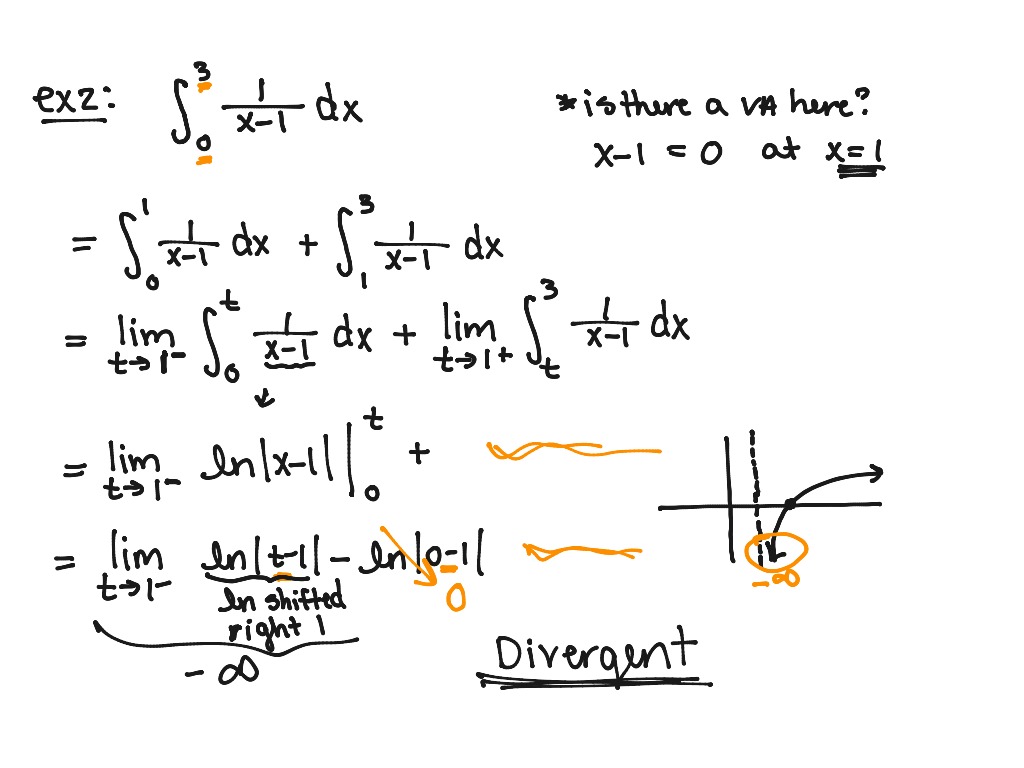 ex2: ∫₀³ 1/(x-1) dx
*is there a VA here?
x-1 = 0 at x=1
= ∫₀¹ 1/(x-1) dx + ∫₁³ 1/(x-1) dx
= lim t→1⁻ ∫₀ᵗ 1/(x-1) dx + lim t→1+ ∫ₜ³ 1/(x-1) dx
= lim t→1⁻ ln|x-1| |₀ᵗ +
= lim t→1⁻ ln|t-1| - ln|0-1|
0
ln shifted
right 1
-∞
-∞
Divergent